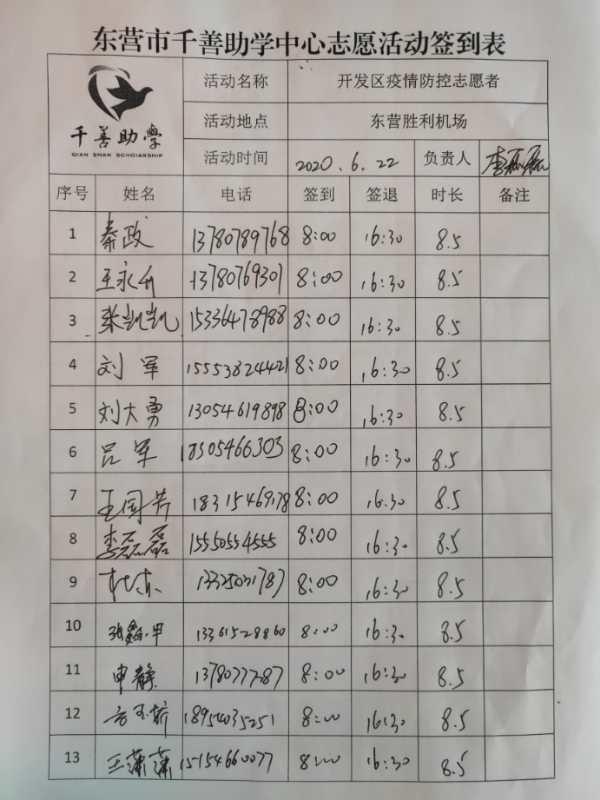 东营市千善助学中心志愿活动签到表
千善助学
QIAN SHAN SCHOLARSHIP
活动名称 开发区疫情防控志愿者
活动地点 东营胜利机场
活动时间 2020.6.22 负责人 李磊磊
序号 姓名 电话 签到 签退 时长 备注
1 秦政 13780789768 8:00 16:30 8.5
2 王永介 13780769301 8:00 16:30 8.5
3 张凯凯 15336478988 8:00 16:30 8.5
4 刘军 15553824421 8:00 16:30 8.5
5 刘大勇 13054619898 8:00 16:30 8.5
6 吕军 18305466303 8:00 16:30 8.5
7 王国芳 18315469178 8:00 16:30 8.5
8 李磊磊 15550554555 8:00 16:30 8.5
9 8:00 16:30 8.5
10 13361528860 8:00 16:30 8.5
11 申静 13780777287 8:00 16:30 8.5
12 18954035251 8:00 16:30 8.5
13 王蒲蒲 15154660077 8:00 16:30 8.5